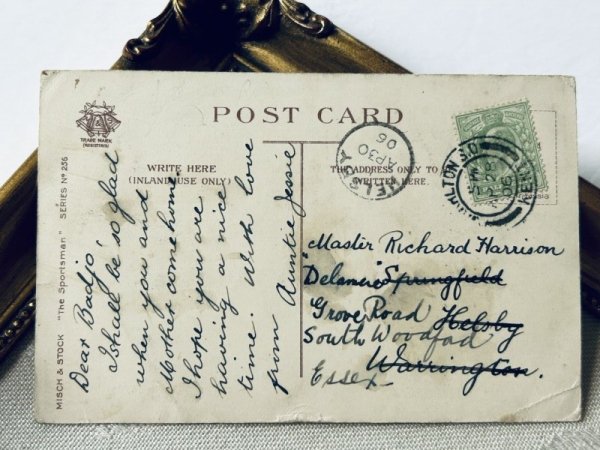 POST CARD
TRADE MARK
(REGISTERED)
WRITE HERE
(INLAND USE ONLY)
THE ADDRESS ONLY TO BE
WRITTEN HERE.
MISCH & STOCK "The Sportsman" SERIES Nº 236
Dear Badjo,
I shall be so glad
when you and
Mother come home.
I hope you are
having a nice
time. With love
from Auntie Jessie
HELSBY
AP 30
06
KENT
"Master Richard Harrison
Springfield
Grove Road Helsby
South Woodford
Warrington.
Essex